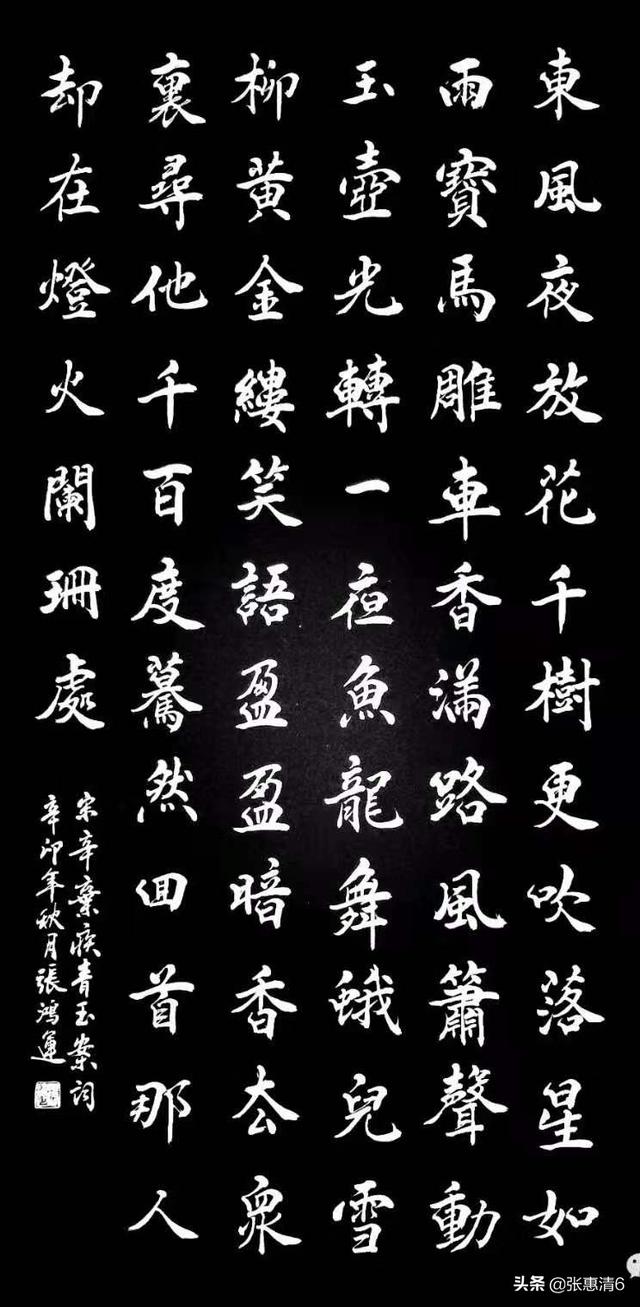 東風夜放花千樹更吹落星如
雨寶馬雕車香滿路風簫聲動
玉壺光轉一夜魚龍舞蛾兒雪
柳黄金縷笑語盈盈暗香去衆
裏尋他千百度驀然回首那人
却在燈火闌珊處
宋辛棄疾青玉案詞
辛卯年秋月張鴻運
头条 @张惠清6